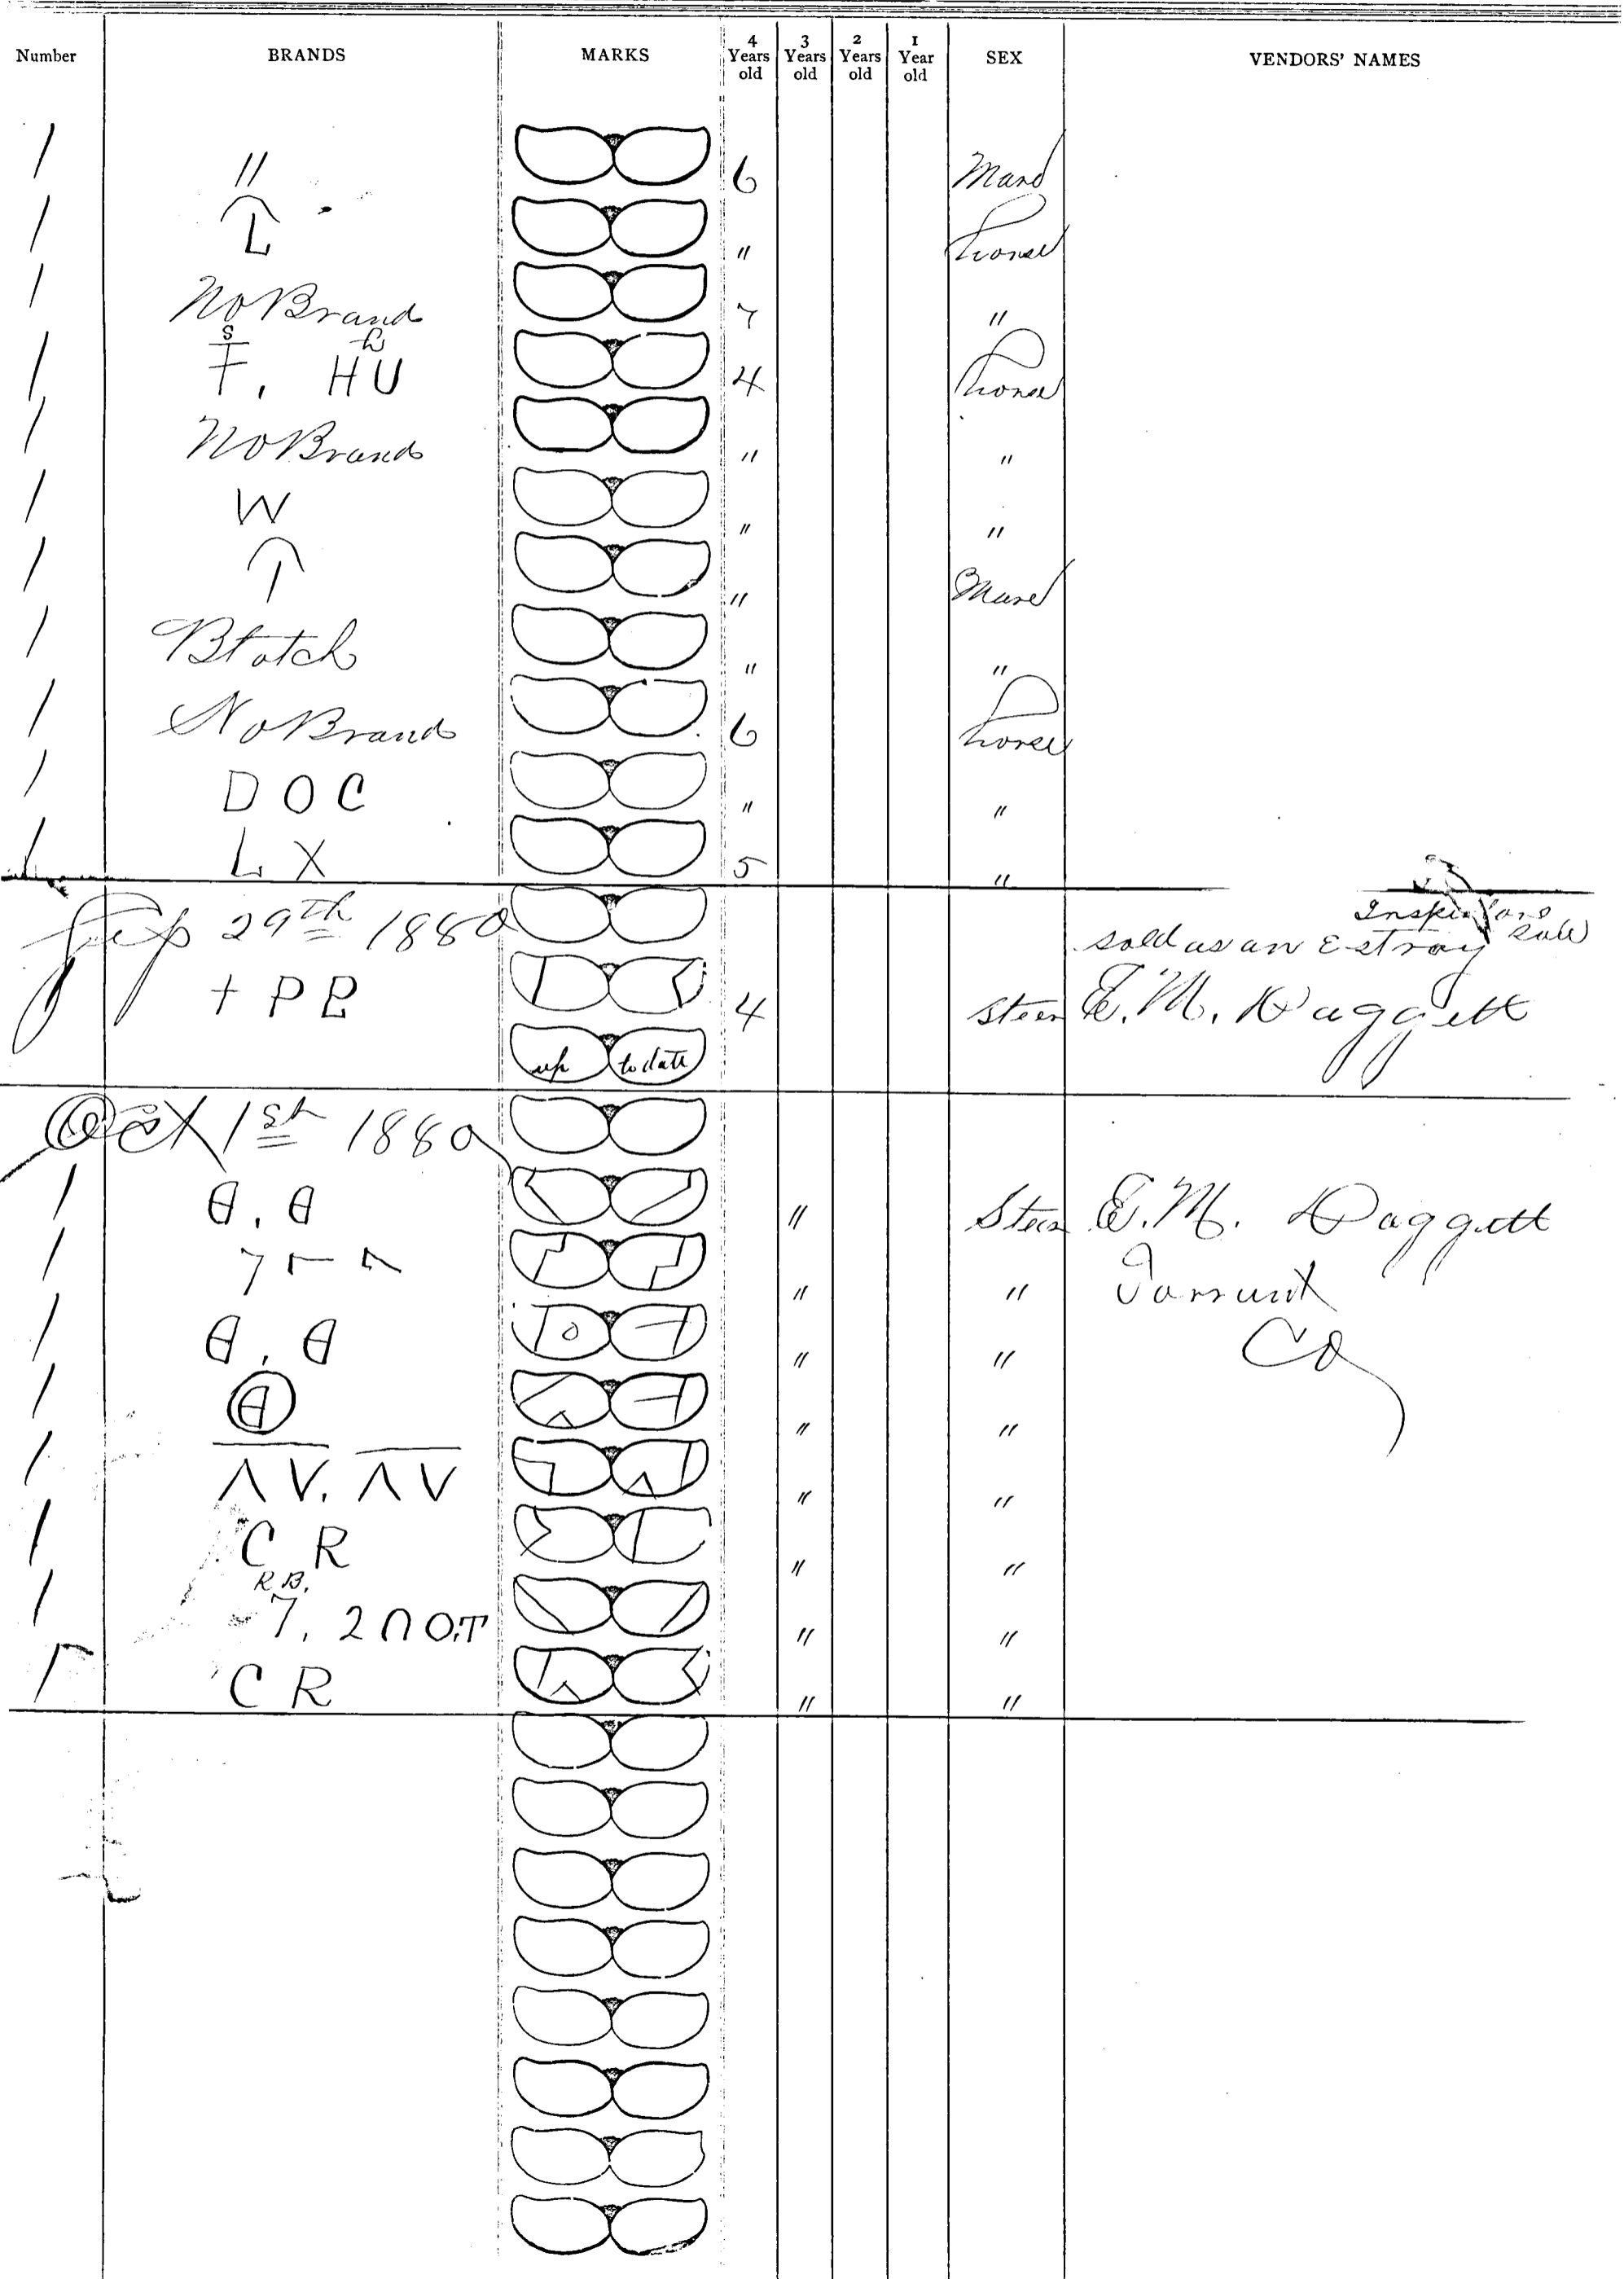 Number BRANDS MARKS 4 Years old 3 Years old 2 Years old 1 Year old SEX VENDORS' NAMES
/ // 6 Mare
/ L " horse
/ No Brand 7 "
/ S T, HU 4 horse
/ No Brand " "
/ W " "
/ " Mare
/ Blotch " "
/ No Brand 6 horse
/ D O C " "
/ L X 5 "
29th 1880 sold as an Estray Inspectors Sale
/ + P 4 steer E. M. Daggett
up to date
Oct 1st 1880
/ " Steer E. M. Daggett
/ 7 " " Tarrant
/ " " Co
/ " "
/ Λ V. Λ V " "
/ C R " "
/ R.B. 7, 2 " "
/ C R " "